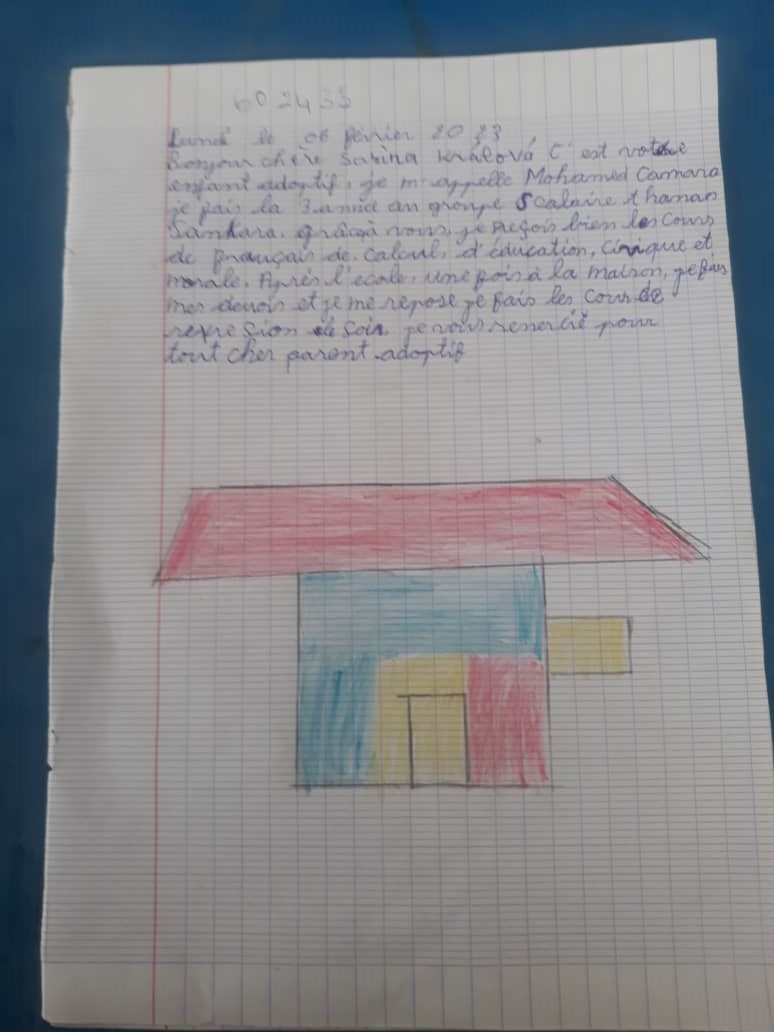 602433
Lundi le 06 février 2023
Bonjour chère Sabina Králová C'est votre
enfant adoptif, je m'appelle Mohamed Camara
je fais la 3 année au groupe Scolaire thomas
Sankara. grâce à vous, je reçois bien les Cours
de français de calcul, d'éducation, Civique et
morale. Après l'ecole, une fois à la maison, je fais
mes devoirs et je me repose je fais les cours de
le soir, je vous remercie pour
tout cher parent adoptif